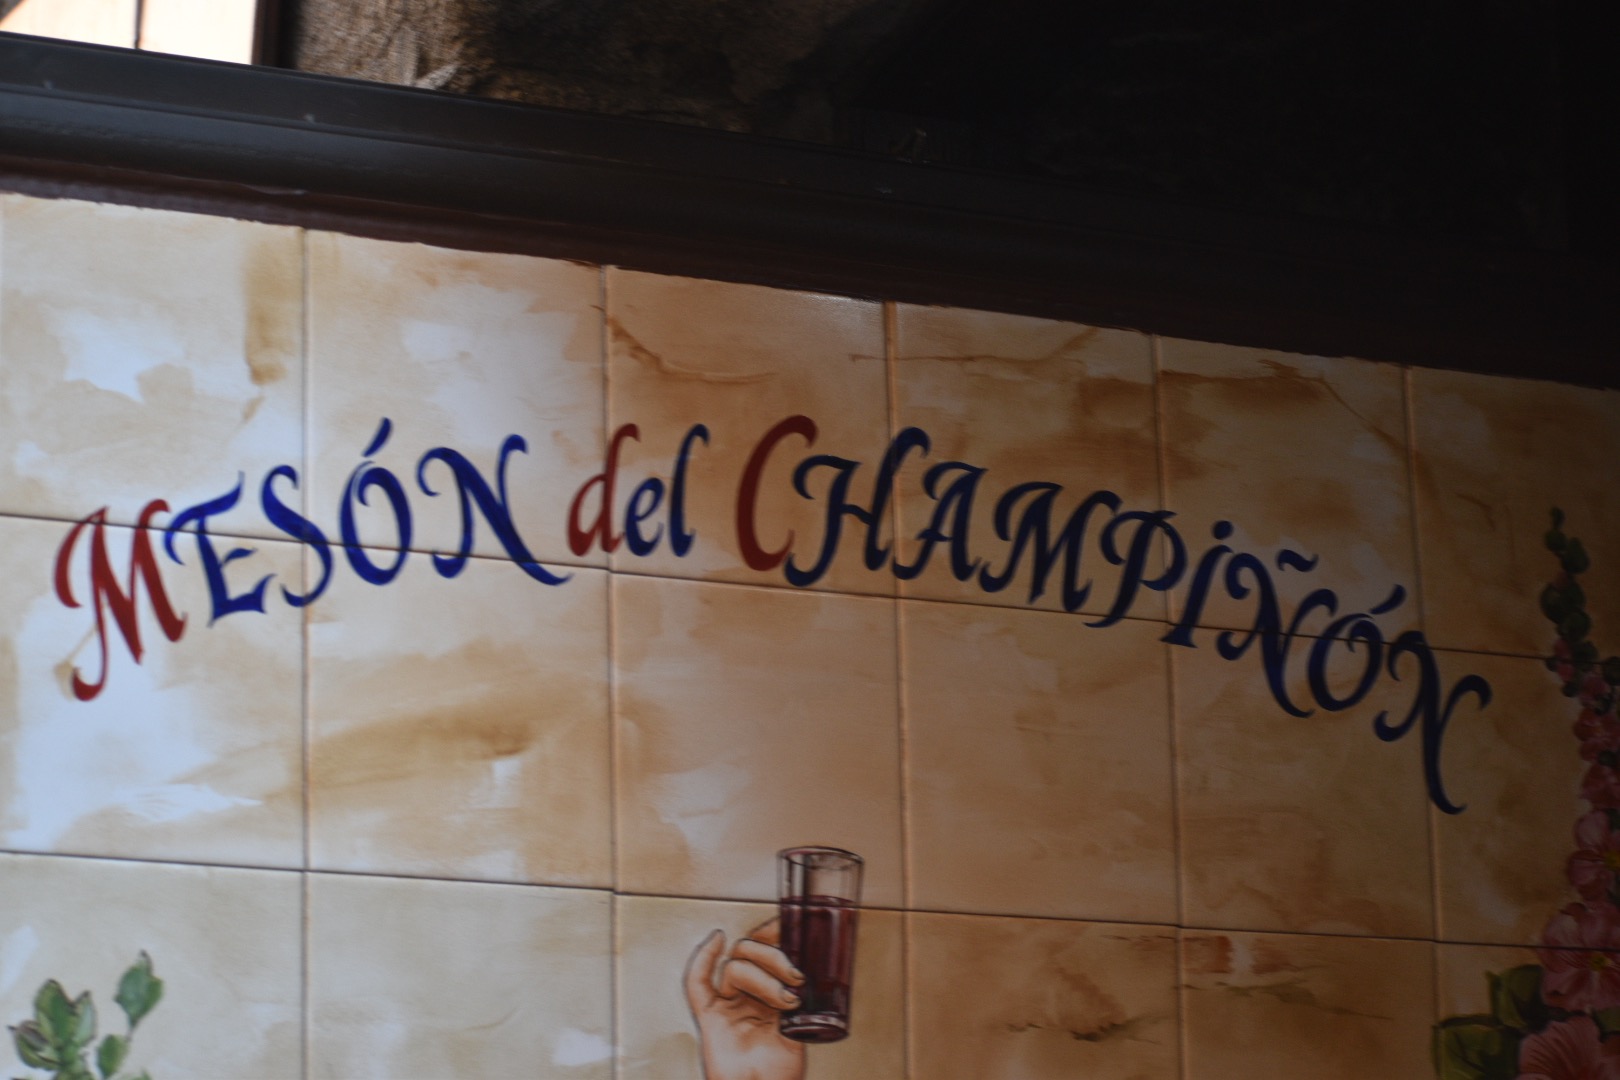 MESÓN del CHAMPiÑÓN